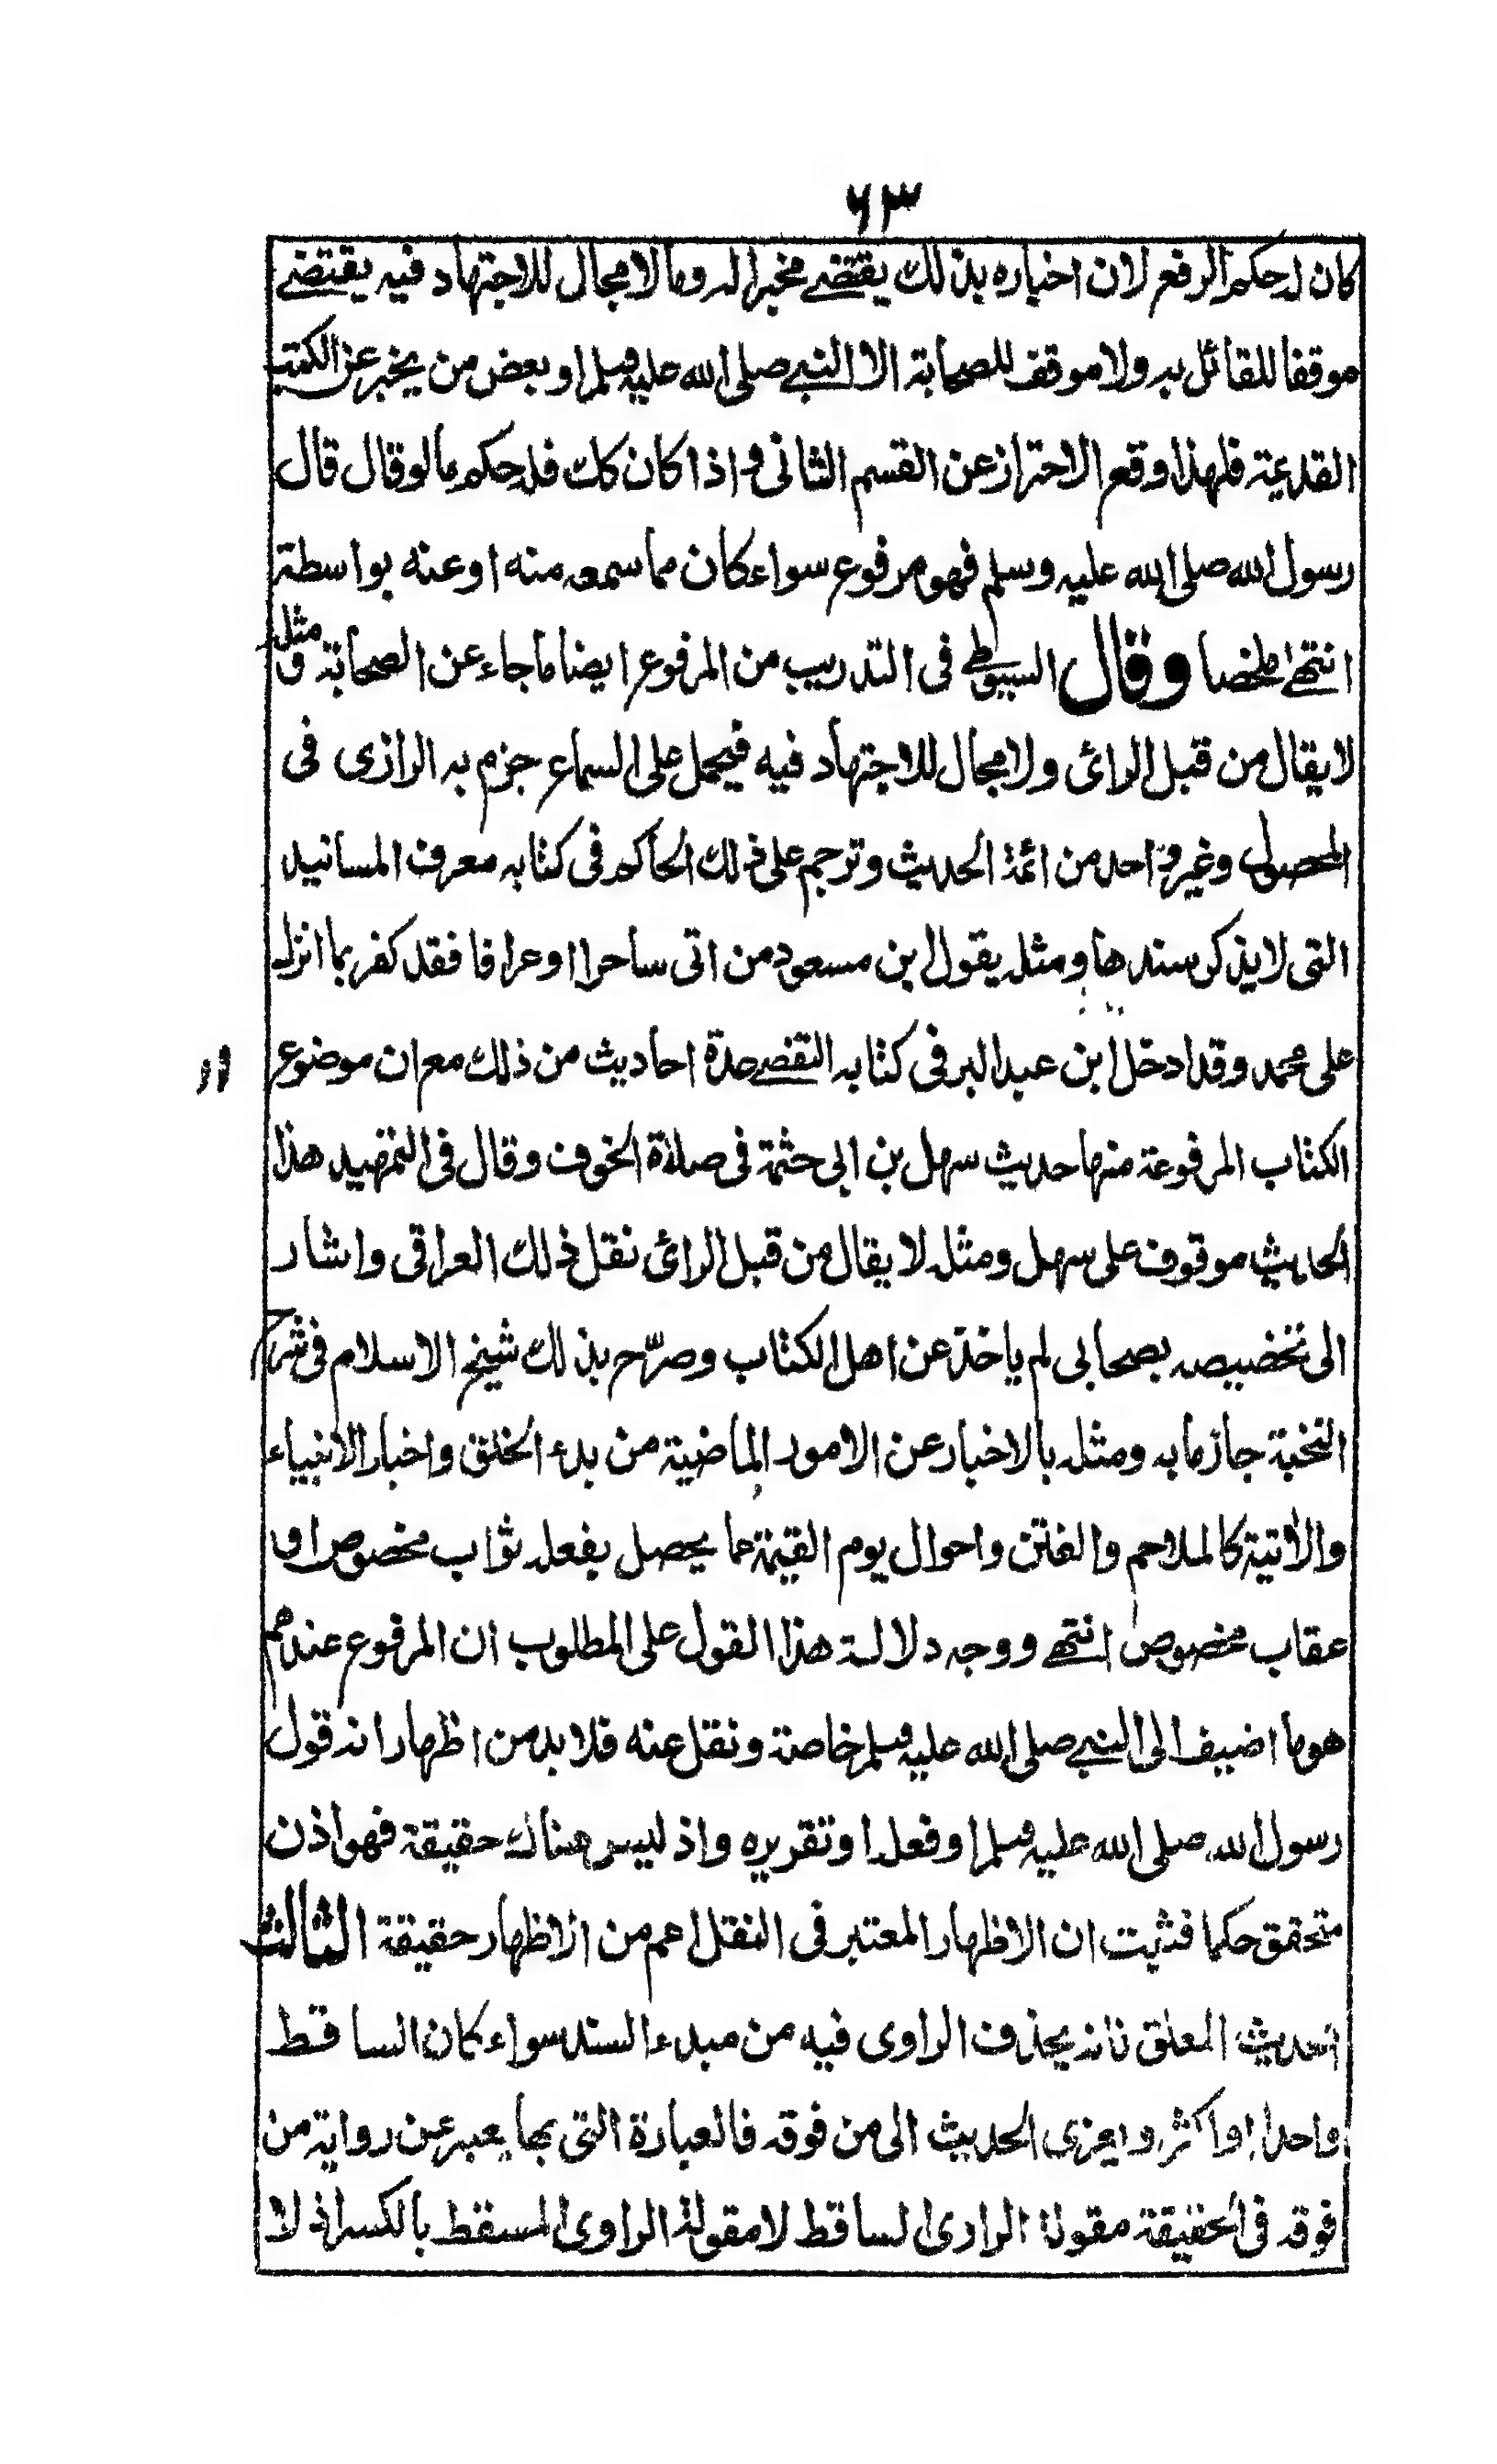 ٦٣
كان له حكم الرفع لان اخباره بذلك يقتضے مخبرا له وما لا مجال للاجتهاد فيه يقتضے
موقفا للقائل به ولا موقف للصحابة الا النبے صلى الله عليه وسلم او بعض من يخبر عن الكتب
القديمة فلهذا وقع الاحتراز عن القسم الثانى واذا كان كك فله حكم ما لو قال قال
رسول الله صلى الله عليه وسلم فهو مرفوع سواء كان مما سمعه منه او عنه بواسطة
انتهے ملخصا وقال السيوطے فى التدريب من المرفوع ايضا ما جاء عن الصحابة ومثله
لا يقال من قبل الرائ ولا مجال للاجتهاد فيه فيحمل على السماع جزم به الرازى فى
المحصول وغير واحد من ائمة الحديث وترجم على ذلك الحاكم فى كتابه معرف المسانيد
التى لا يذكر سندها ومثله بقول بن مسعود من اتى ساحرا او عرافا فقد كفر بما انزل
على محمد وقد ادخل ابن عبد البر فى كتابه التقصے عدة احاديث من ذلك مع ان موضوع
الكتاب المرفوعة منها حديث سهل بن ابى حثمة فى صلاة الخوف وقال فى التمهيد هذا
الحديث موقوف على سهل ومثله لا يقال من قبل الرائ نقل ذلك العراقى واشار
الى تخصيصه بصحابى لم ياخذ عن اهل الكتاب وصرّح بذلك شيخ الاسلام فى شرح
النخبة جازما به ومثله بالاخبار عن الامور الماضية من بدء الخلق واخبار الانبياء
والاتية كالملاحم والفتن واحوال يوم القيمة وعما يحصل بفعله ثواب مخصوص او
عقاب مخصوص انتهے ووجه دلالة هذا القول على المطلوب ان المرفوع عندهم
هو ما اضيف الى النبے صلى الله عليه وسلم خاصة ونقل عنه فلا بد من اظهار انه قول
رسول الله صلى الله عليه وسلم او فعله او تقريره واذ ليس هناك حقيقة فهو اذن
متحقق حكما فثبت ان الاظهار المعتبر فى النقل اعم من الاظهار حقيقة الثالث
الحديث المعلق فانه يحذف الراوى فيه من مبدء السند سواء كان الساقط
واحدا او اكثر ويعزى الحديث الى من فوقه فالعبارة التى بها يعبر عن رواية من
فوقه فى الحقيقة مقولة الراوى الساقط لا مقولة الراوى المسقط بالكسر اذ لا